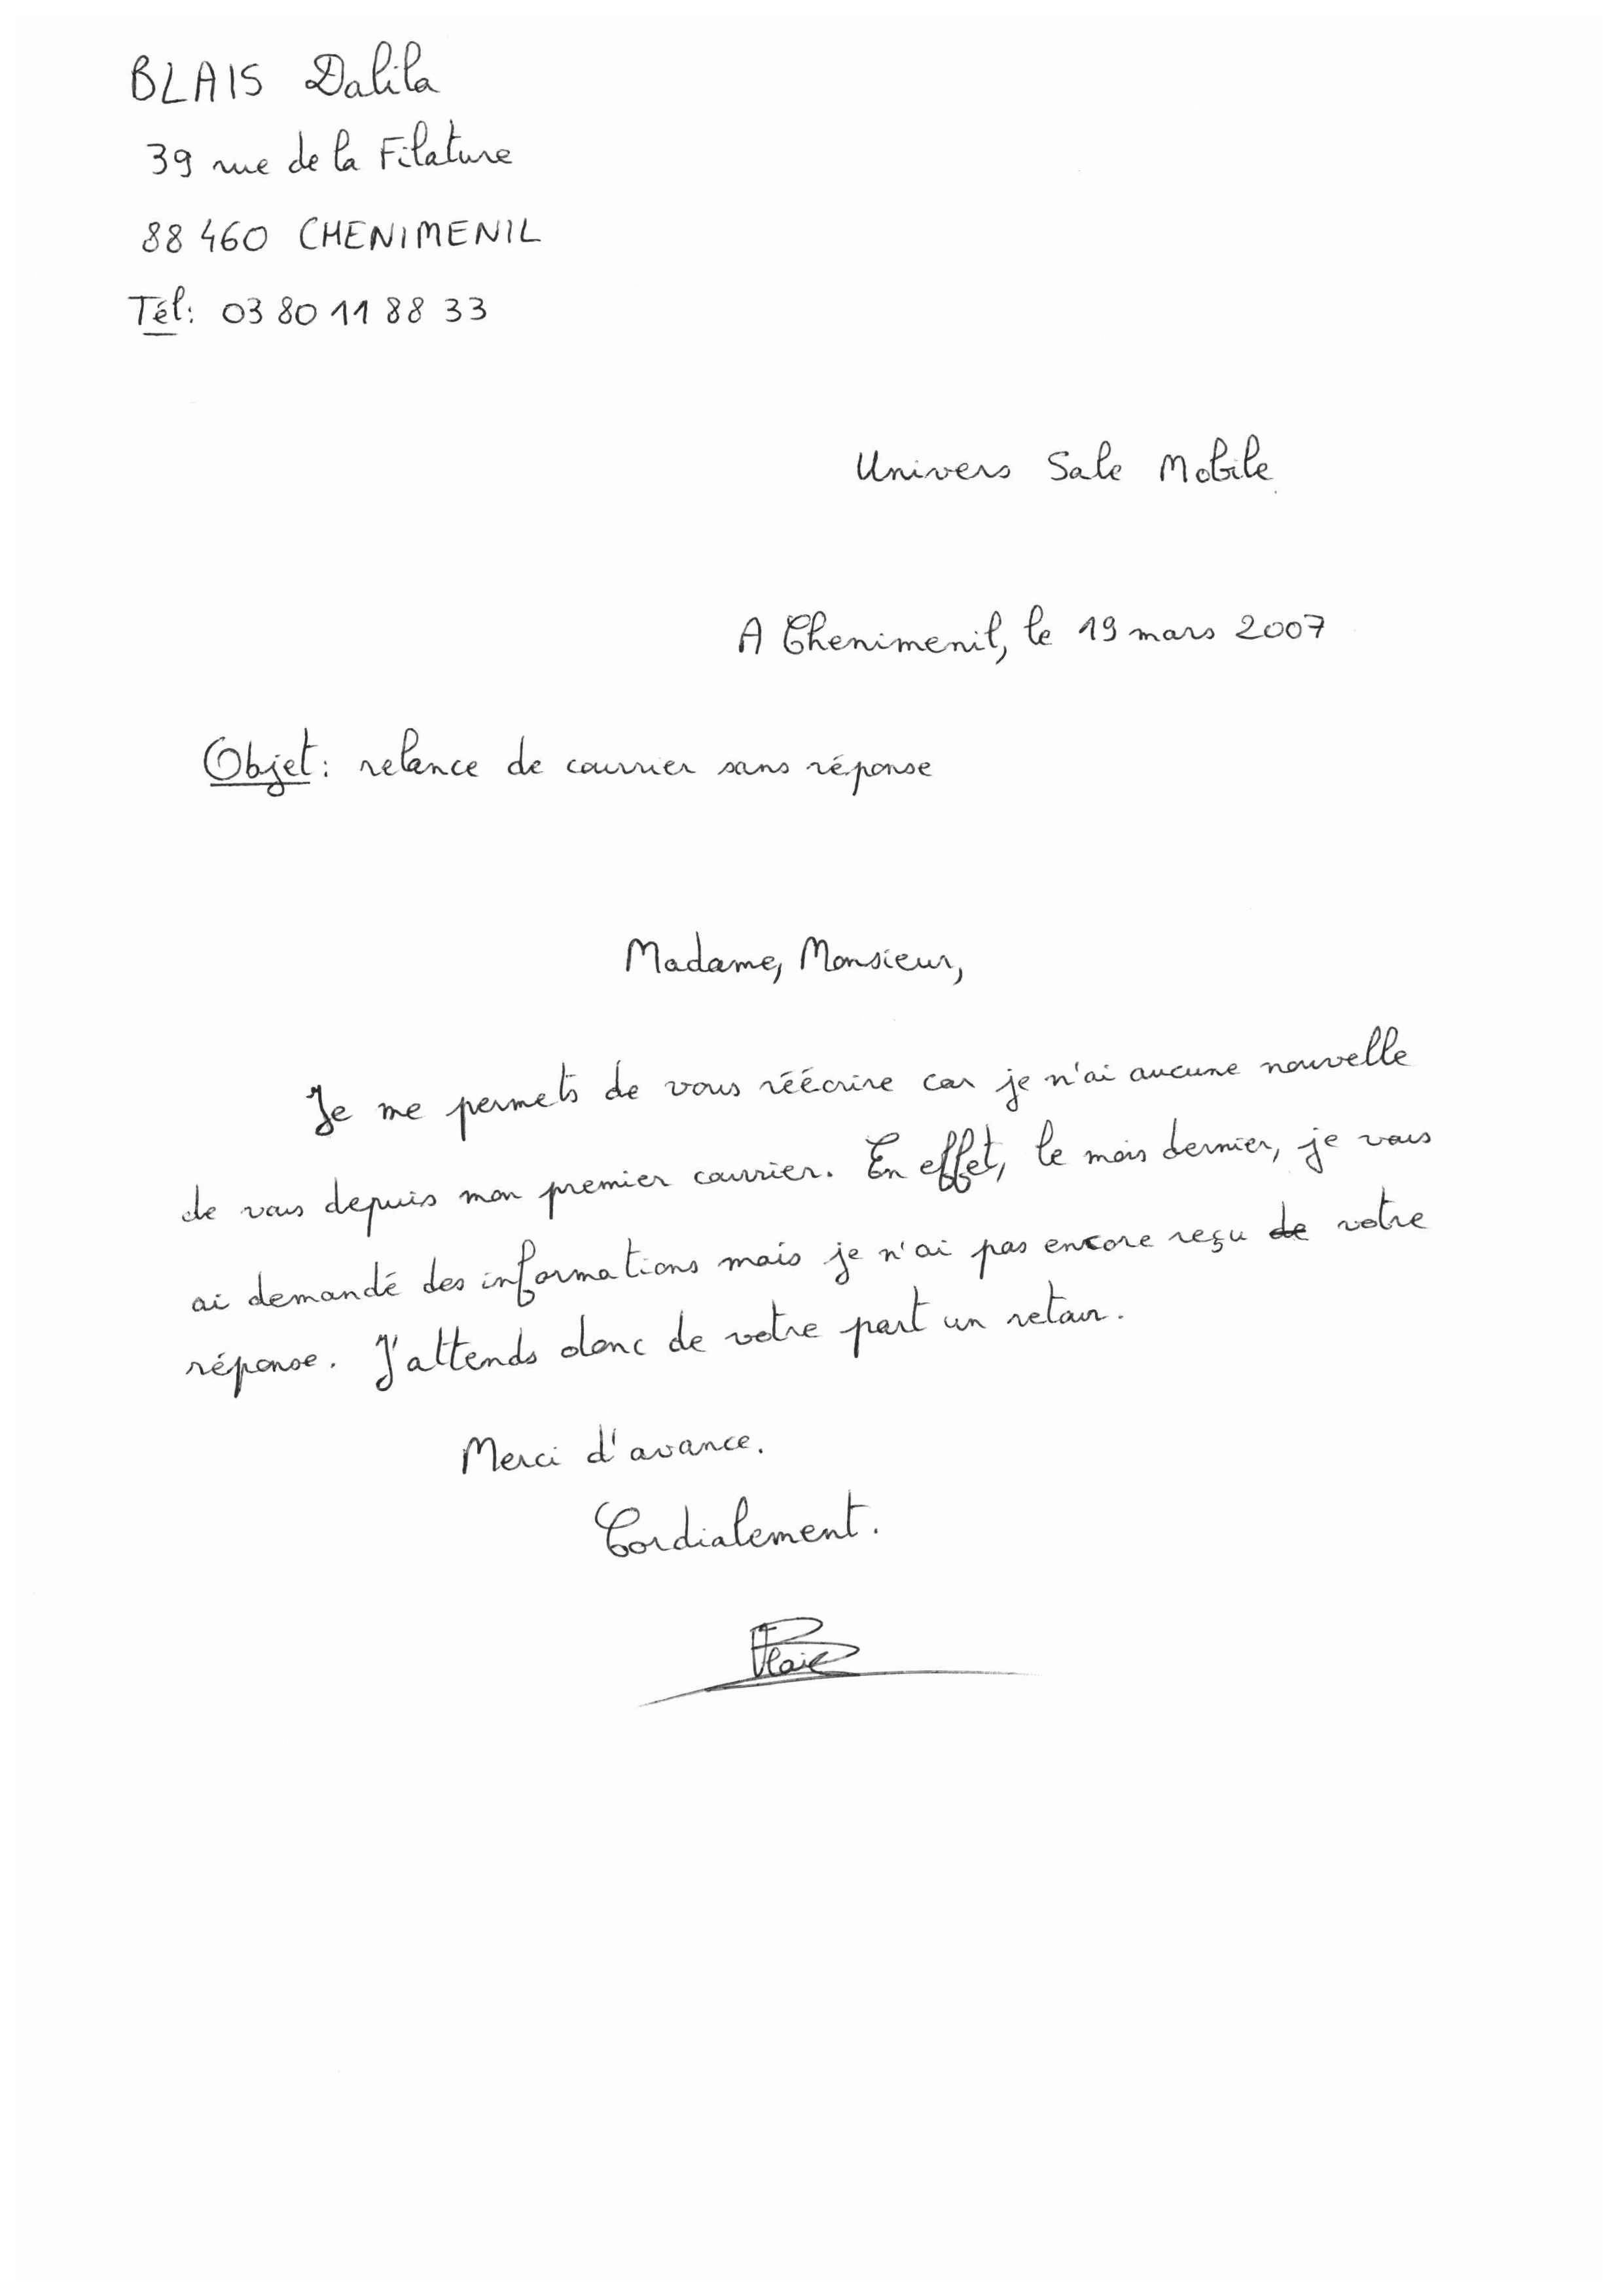 BLAIS Dalila
39 rue de la Filature
88 460 CHENIMENIL
Tél: 03 80 11 88 33
Univers Sale Mobile
A Chenimenil, le 19 mars 2007
Objet: relance de courrier sans réponse
Madame, Monsieur,
Je me permets de vous réécrire car je n'ai aucune nouvelle
de vous depuis mon premier courrier. En effet, le mois dernier, je vous
ai demandé des informations mais je n'ai pas encore reçu de votre
réponse. J'attends donc de votre part un retour.
Merci d'avance.
Cordialement.
Blais